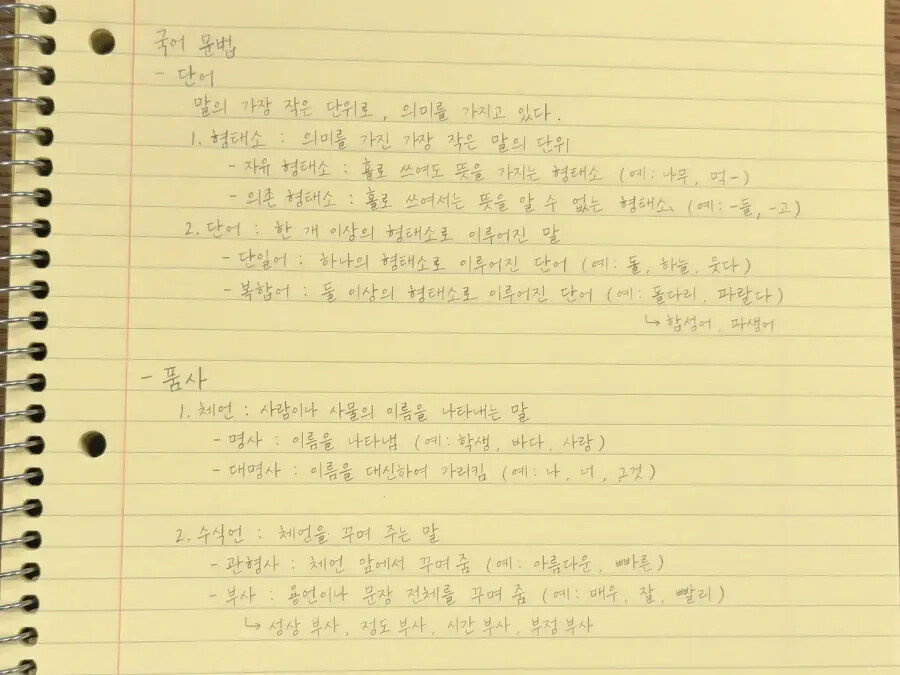 국어 문법
- 단어
말의 가장 작은 단위로, 의미를 가지고 있다.
1. 형태소 : 의미를 가진 가장 작은 말의 단위
- 자유 형태소 : 홀로 쓰여도 뜻을 가지는 형태소 (예: 나무, 먹-)
- 의존 형태소 : 홀로 쓰여서는 뜻을 알 수 없는 형태소 (예: -들, -고)
2. 단어 : 한 개 이상의 형태소로 이루어진 말
- 단일어 : 하나의 형태소로 이루어진 단어 (예: 돌, 하늘, 웃다)
- 복합어 : 둘 이상의 형태소로 이루어진 단어 (예: 돌다리, 파랗다)
↳ 합성어, 파생어
- 품사
1. 체언 : 사람이나 사물의 이름을 나타내는 말
- 명사 : 이름을 나타냄 (예: 학생, 바다, 사랑)
- 대명사 : 이름을 대신하여 가리킴 (예: 나, 너, 그것)
2. 수식언 : 체언을 꾸며 주는 말
- 관형사 : 체언 앞에서 꾸며 줌 (예: 아름다운, 빠른)
- 부사 : 용언이나 문장 전체를 꾸며 줌 (예: 매우, 잘, 빨리)
↳ 성상 부사, 정도 부사, 시간 부사, 부정 부사